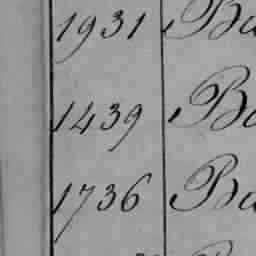 1931 Ba
1439 Ba
1736 Ba